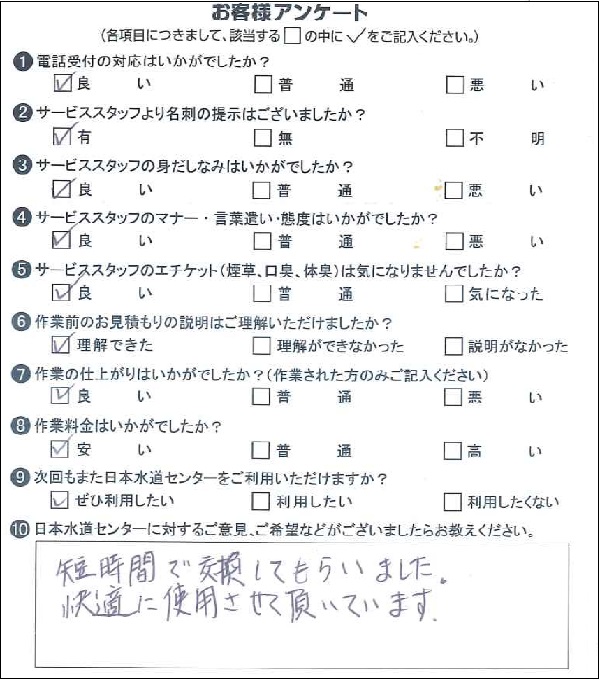 お客様アンケート
(各項目につきまして、該当する□の中に✓をご記入ください。)
❶電話受付の対応はいかがでしたか？
☑良い □普通 □悪い
❷サービススタッフより名刺の提示はございましたか？
☑有 □無 □不明
❸サービススタッフの身だしなみはいかがでしたか？
☑良い □普通 □悪い
❹サービススタッフのマナー・言葉遣い・態度はいかがでしたか？
☑良い □普通 □悪い
❺サービススタッフのエチケット(煙草、口臭、体臭)は気になりませんでしたか？
☑良い □普通 □気になった
❻作業前のお見積もりの説明はご理解いただけましたか？
☑理解できた □理解ができなかった □説明がなかった
❼作業の仕上がりはいかがでしたか？(作業された方のみご記入ください)
☑良い □普通 □悪い
❽作業料金はいかがでしたか？
☑安い □普通 □高い
❾次回もまた日本水道センターをご利用いただけますか？
☑ぜひ利用したい □利用したい □利用したくない
❿日本水道センターに対するご意見、ご希望などがございましたらお教えください。
短時間で交換してもらいました。
快適に使用させて頂いています。